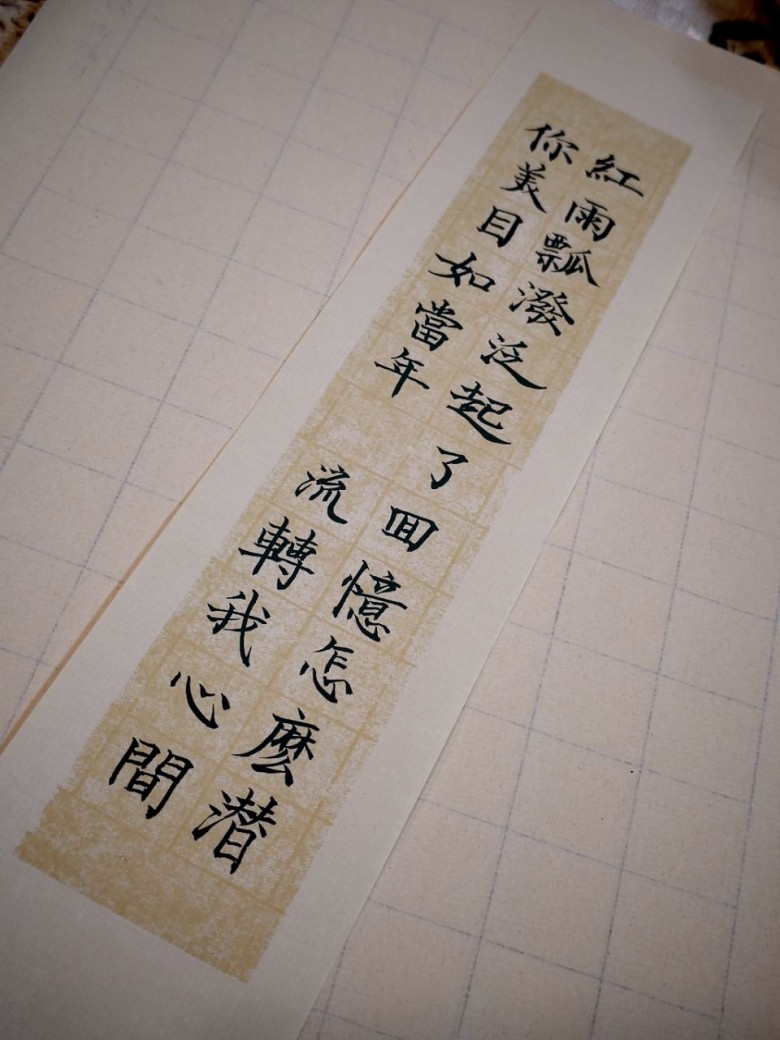 紅雨瓢潑泛起了回憶怎麽潜
你美目如當年 流轉我心間